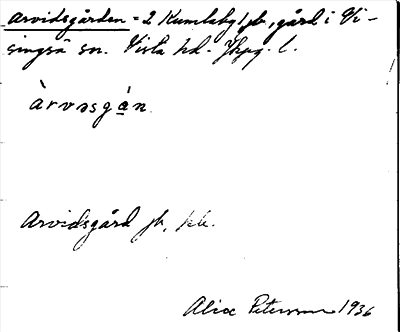 Arvidsgården = 2 Kumlaby 1 jb, gård i Vi-
singsö sn. Vista hd. Jkpg. l.
àrvəsgá̱n
Arvidsgård jb, kb.
Alice Peterson 1936